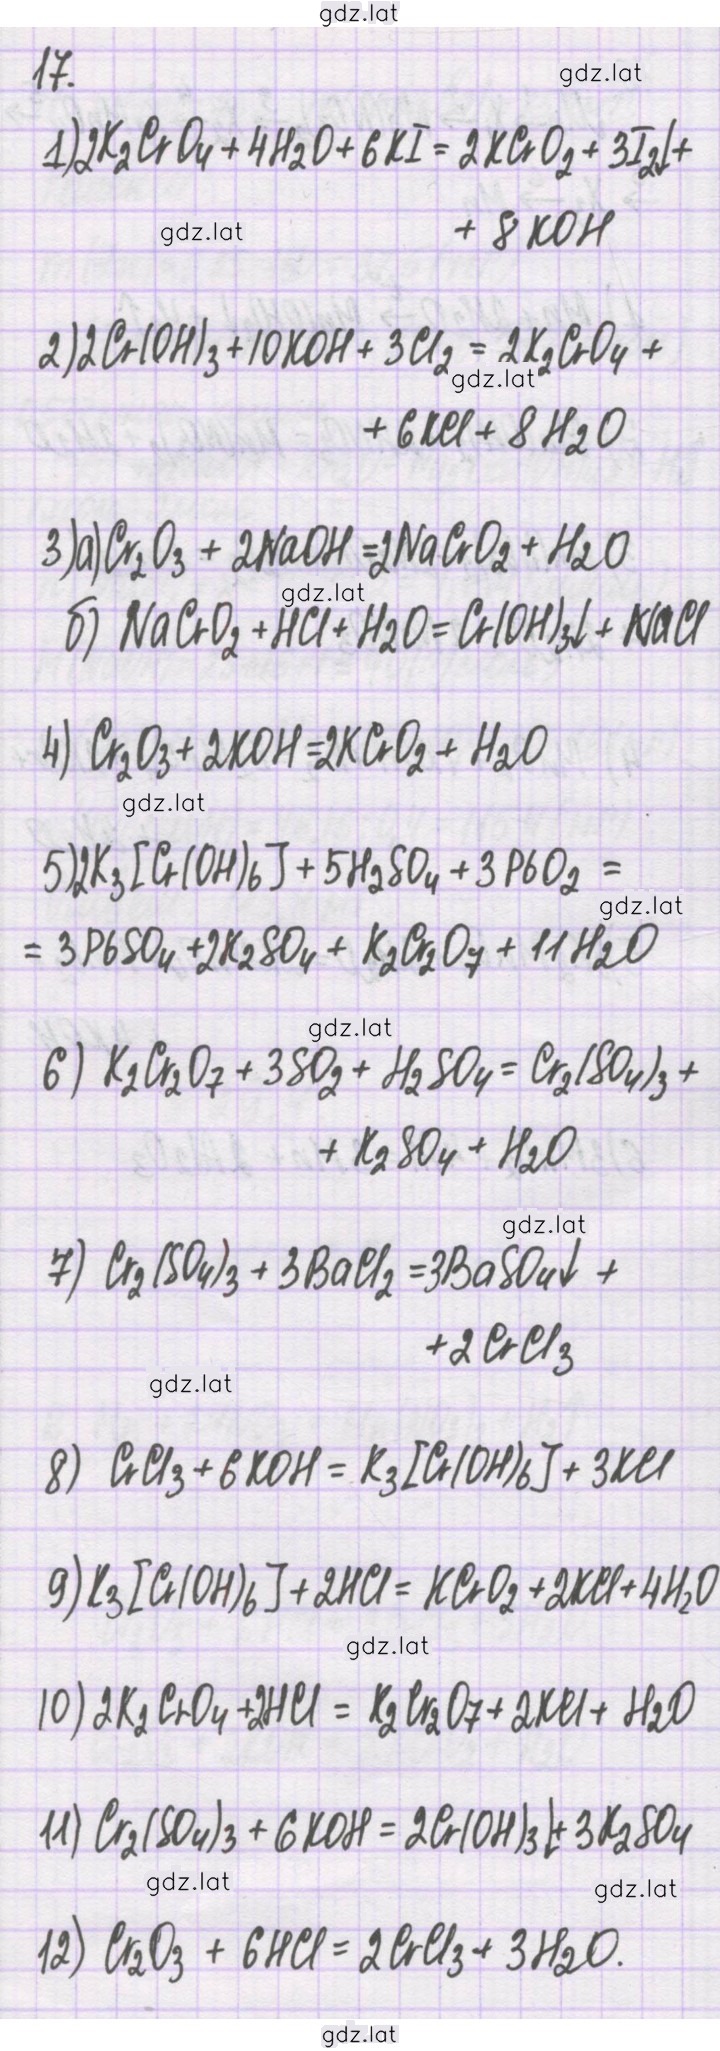 gdz.lat
17.
gdz.lat
1) 2K₂CrO₄ + 4H₂O + 6KI = 2KCrO₂ + 3I₂↓ +
gdz.lat
+ 8KOH
2) 2Cr(OH)₃ + 10KOH + 3Cl₂ = 2K₂CrO₄ +
gdz.lat
+ 6KCl + 8H₂O
3) а) Cr₂O₃ + 2NaOH = 2NaCrO₂ + H₂O
gdz.lat
б) NaCrO₂ + HCl + H₂O = Cr(OH)₃↓ + NaCl
4) Cr₂O₃ + 2KOH = 2KCrO₂ + H₂O
gdz.lat
5) 2K₃[Cr(OH)₆] + 5H₂SO₄ + 3PbO₂ =
gdz.lat
= 3PbSO₄ + 2K₂SO₄ + K₂Cr₂O₇ + 11H₂O
gdz.lat
6) K₂Cr₂O₇ + 3SO₂ + H₂SO₄ = Cr₂(SO₄)₃ +
+ K₂SO₄ + H₂O
gdz.lat
7) Cr₂(SO₄)₃ + 3BaCl₂ = 3BaSO₄↓ +
+ 2CrCl₃
gdz.lat
8) CrCl₃ + 6KOH = K₃[Cr(OH)₆] + 3KCl
9) K₃[Cr(OH)₆] + 2HCl = KCrO₂ + 2KCl + 4H₂O
gdz.lat
10) 2K₂CrO₄ + 2HCl = K₂Cr₂O₇ + 2KCl + H₂O
11) Cr₂(SO₄)₃ + 6KOH = 2Cr(OH)₃↓ + 3K₂SO₄
gdz.lat
gdz.lat
12) Cr₂O₃ + 6HCl = 2CrCl₃ + 3H₂O.
gdz.lat